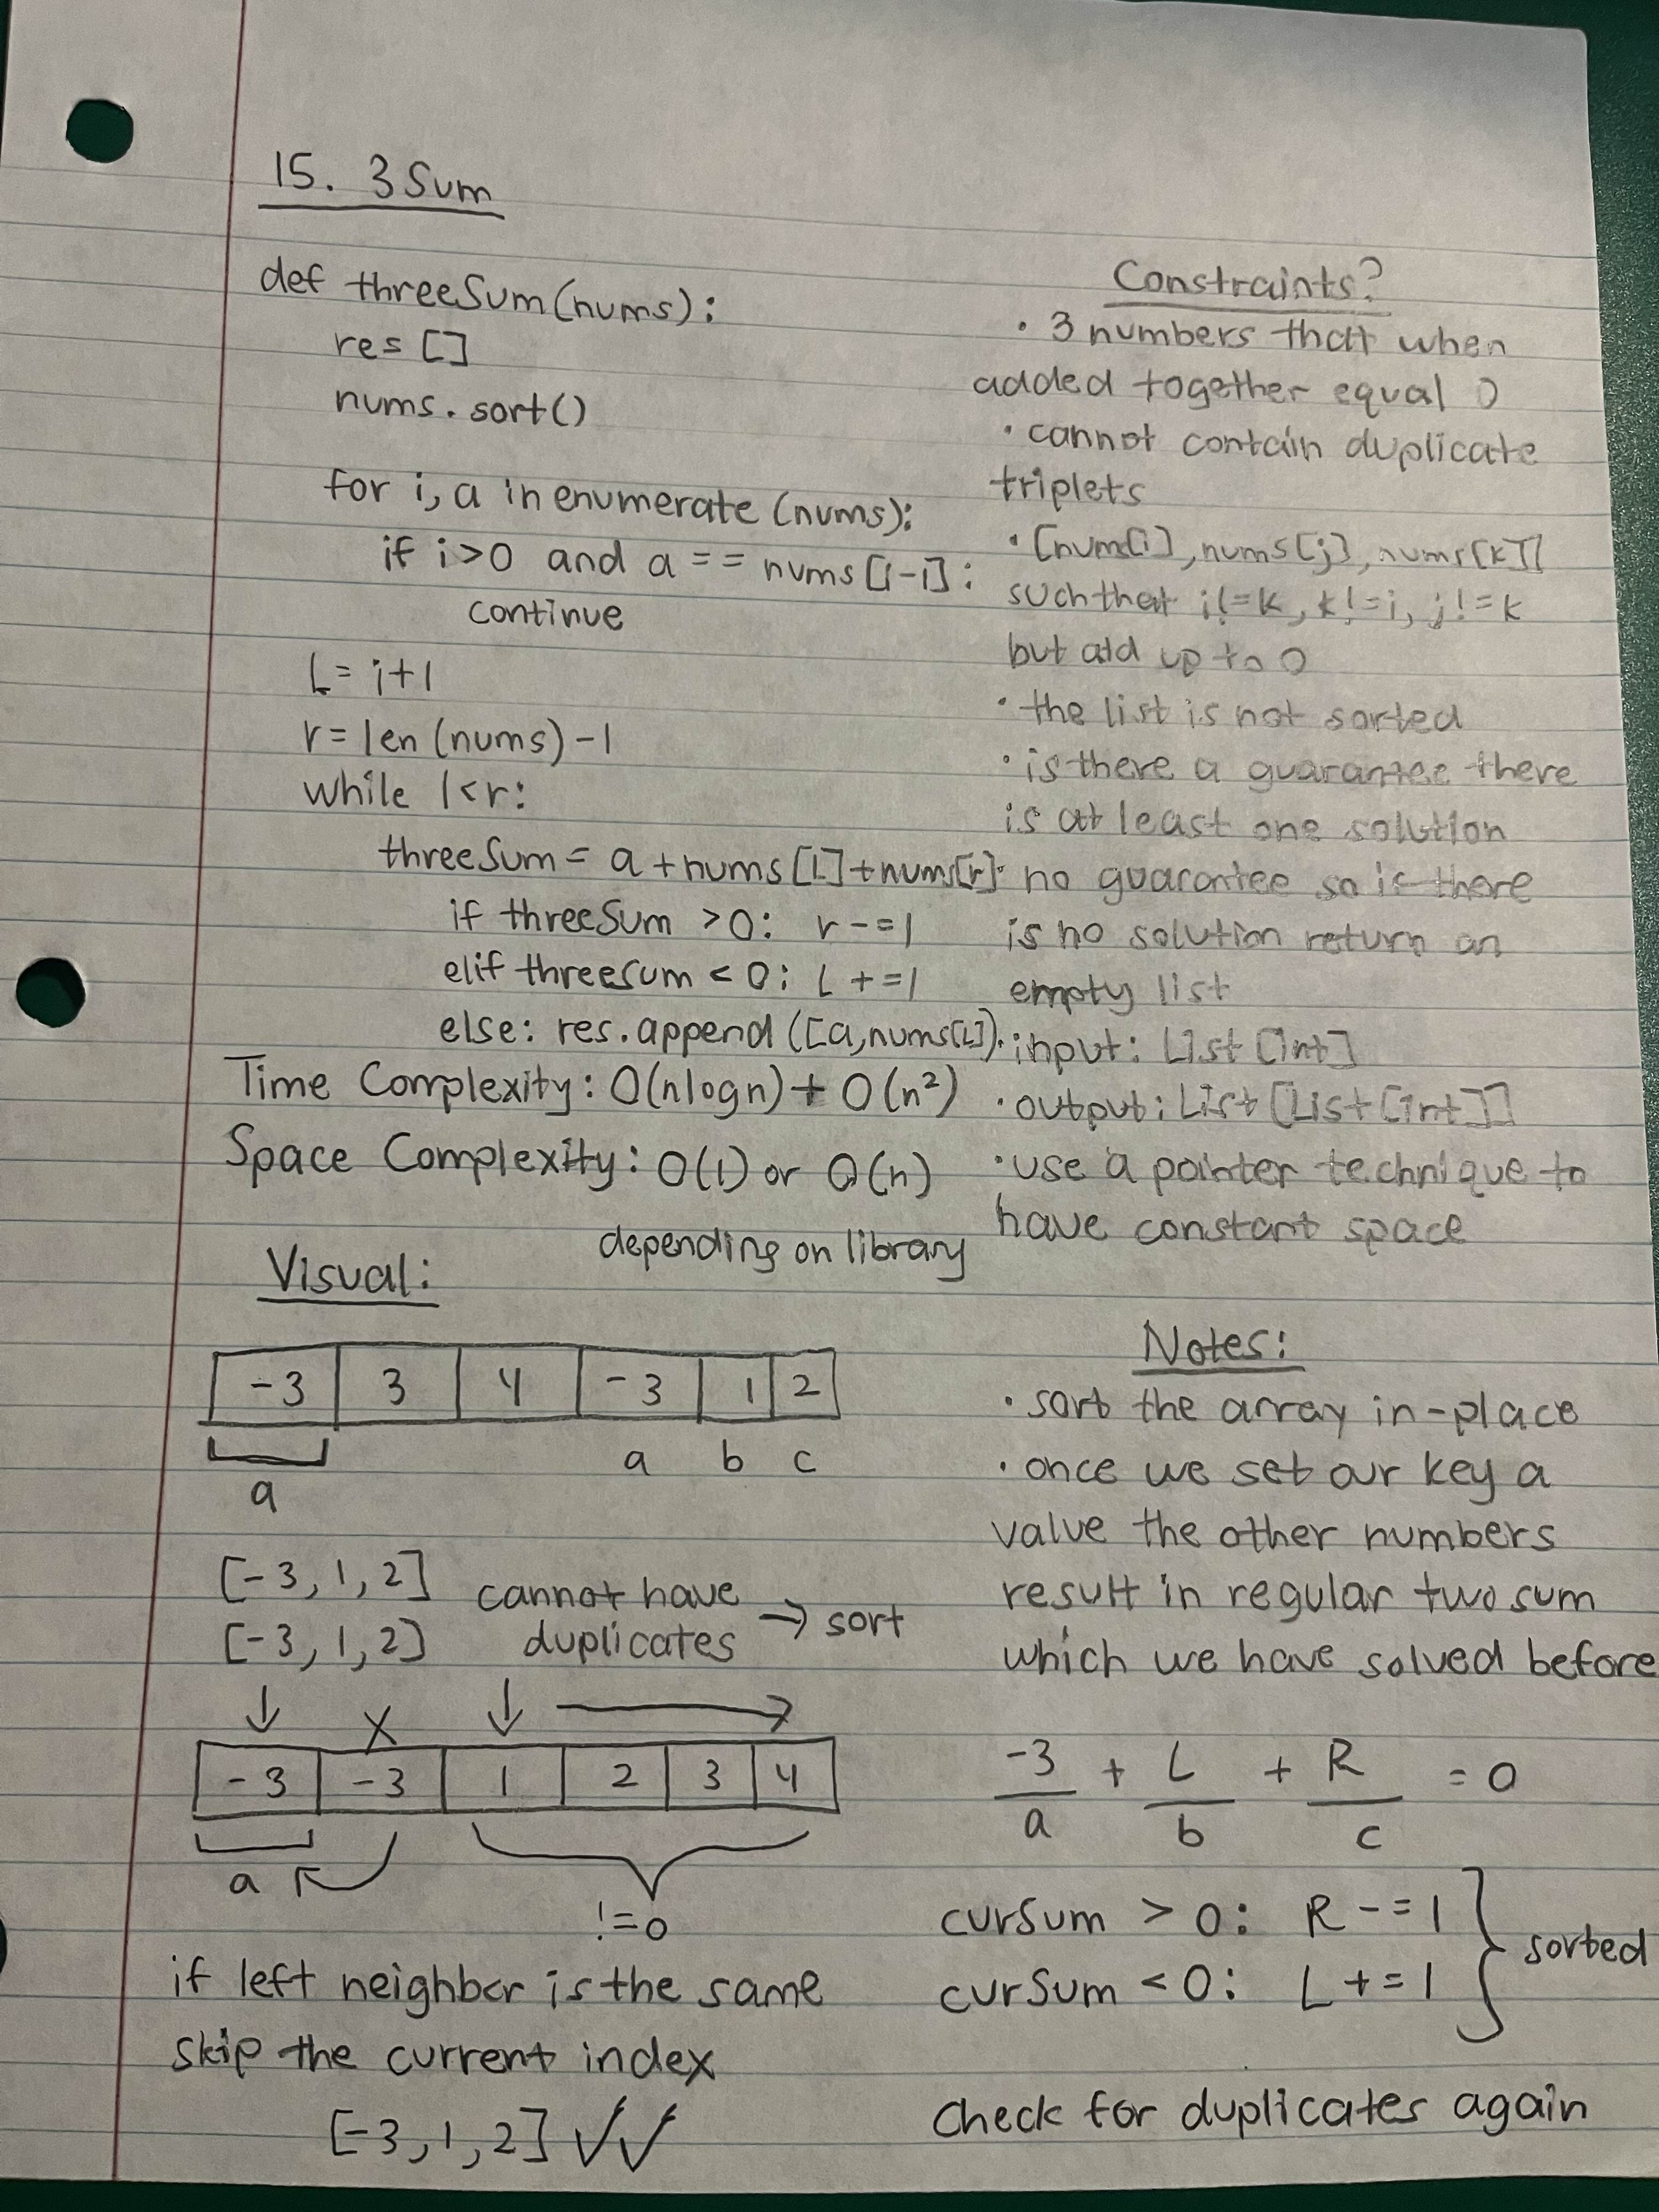 15. 3 Sum
def threeSum(nums):
res []
nums.sort()
for i, a in enumerate (nums):
if i>0 and a == nums [i-i]:
continue
L = i+1
r = len (nums) - 1
while l<r:
threeSum = a + nums [L] + nums[r]
if threeSum >0: r -= 1
elif threesum < 0: L += 1
else: res.append ([a, nums[L]).
Time Complexity: O(nlogn) + O(n²)
Space Complexity: O(1) or O(n)
depending on library
Constraints?
• 3 numbers that when
added together equal 0
• cannot contain duplicate
triplets
• [nums[i], nums[j], nums[k]]
such that i!=k, k!=i, j!=k
but add up to 0
• the list is not sorted
• is there a guarantee there
is at least one solution
• no guarantee so if there
is no solution return an
empty list
• input: List [int]
• output: List [List [int]]
• use a pointer technique to
have constant space
Visual:
-3 3 4 -3 1 2
a b c
a
[-3, 1, 2]
[-3, 1, 2]
cannot have
duplicates → sort
↓ X ↓ →
-3 -3 1 2 3 4
a
!=0
if left neighbor is the same
skip the current index
[-3, 1, 2] ✓✓
Notes:
• sort the array in-place
• once we set our key a
value the other numbers
result in regular two sum
which we have solved before
-3 + L + R = 0
a b c
curSum > 0: R -= 1
curSum < 0: L += 1
sorted
check for duplicates again